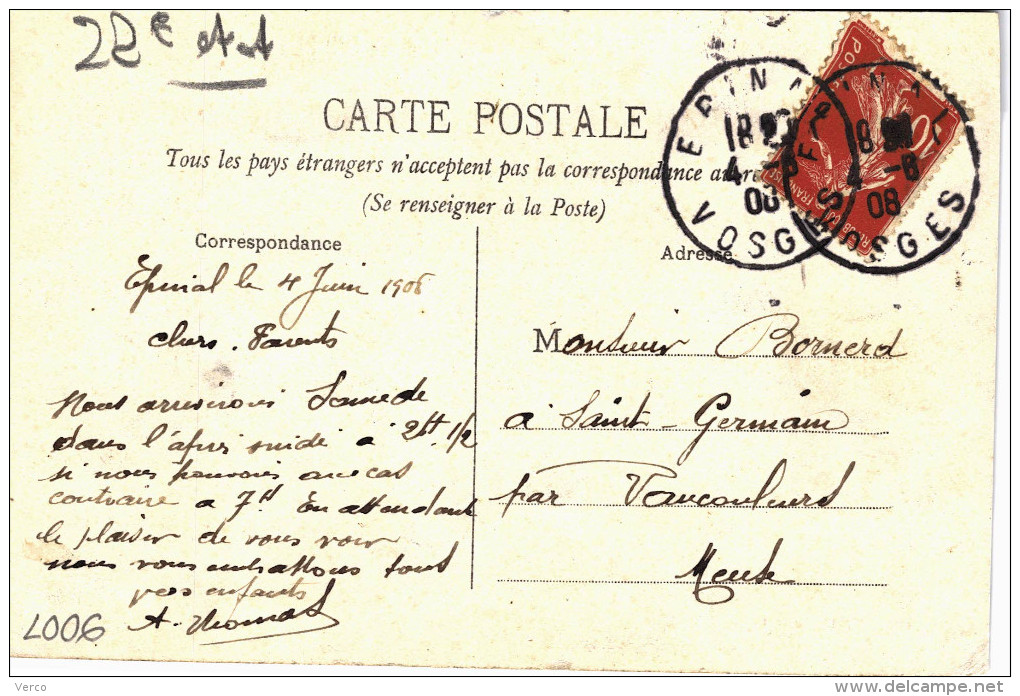 22e
CARTE POSTALE
Tous les pays étrangers n'acceptent pas la correspondance au
(Se renseigner à la Poste)
EPINAL
VOSGES
18
4 -6
08
EPINAL
VOSGES
18
4 -6
08
Correspondance
Adresse
Epinal le 4 Juin 1908
chers Parents
Nous arriverons Samedi
dans l'après midi à 2H 1/2
si nous pouvons au cas
contraire a 7H En attendant
le plaisir de vous voir
nous vous embrassons tous
vos enfants
A. Thomas
Monsieur Bornerd
à Saint-Germain
par Vaucouleurs
Meuse
L006
Verco
delcampe.net